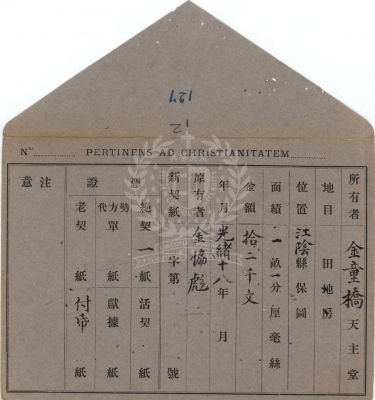 127
12
Nro. PERTINENS AD CHRISTIANITATEM
所有者 金童橋 天主堂
地目 田地房
位置 江陰縣 保圖
面績 一畝一分 厘毫絲
金額 拾二千文
年月 光緒十八年 月
原有者 金協彪
新契紙 字第 號
憑證
絕契 一紙 活契 紙
勞方單代 紙 獻據 紙
老契 紙 付帋 紙
注意